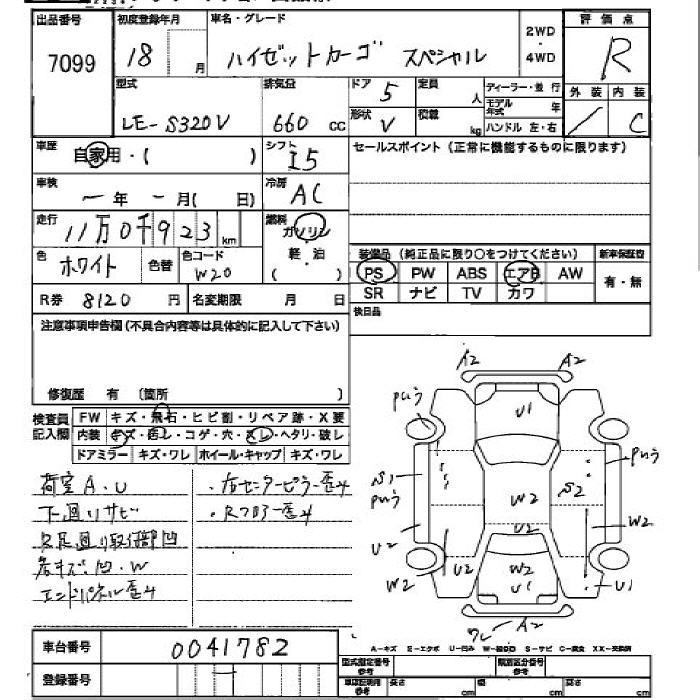 出品番号 初度登録年月 車名・グレード 評価点
7099 18 月 ハイゼットカーゴ スペシャル 2WD・4WD R
型式 排気量 ドア 5 定員 人 ディーラー・並行 外装 内装
LE-S320V 660 cc 形状 V 積載 kg モデル年式 年 / C
ハンドル 左・右
車歴 自家用・( ) シフト I5 セールスポイント(正常に機能するものに限ります)
車検 ー年 ー月( 日) 冷房 AC
走行 11万0千923km 燃料 ガソリン
軽・油
( )
色 ホワイト 色替 色コード W20
装備品(純正品に限り○をつけてください) 新車保証書
PS PW ABS エアB AW 有・無
SR ナビ TV カワ
R券 8120円 名変期限 月 日 後日品
注意事項申告欄(不具合内容等は具体的に記入して下さい)
修復歴 有 〔箇所 〕
検査員記入欄 FW キズ・飛石・ヒビ割・リペア跡・X要
内装 キズ・汚レ・コゲ・穴・スレ・ヘタリ・破レ
ドアミラー キズ・ワレ ホイール・キャップ キズ・ワレ
荷室A.U ・右センターピラー歪み
下廻りサビ ・Rフロアー歪み
キズ.凹.W
エンドパネル歪み
A2 A2
U1
W2
U2
S2
W2
U1
U2
S1
U2
W2
W2
U1
ワレ A2
A-キズ E-エクボ U-凹み W-補修跡 S-サビ C-腐食 XX-交換済
車台番号 0041782
登録番号
型式指定番号 参考 類別区分番号 参考
車庫証明用 参考 長さ cm 幅 cm 高さ cm